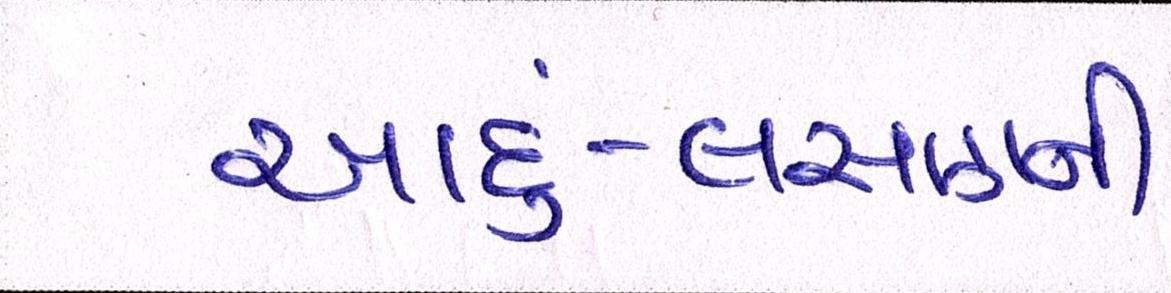 આદું-લસણની